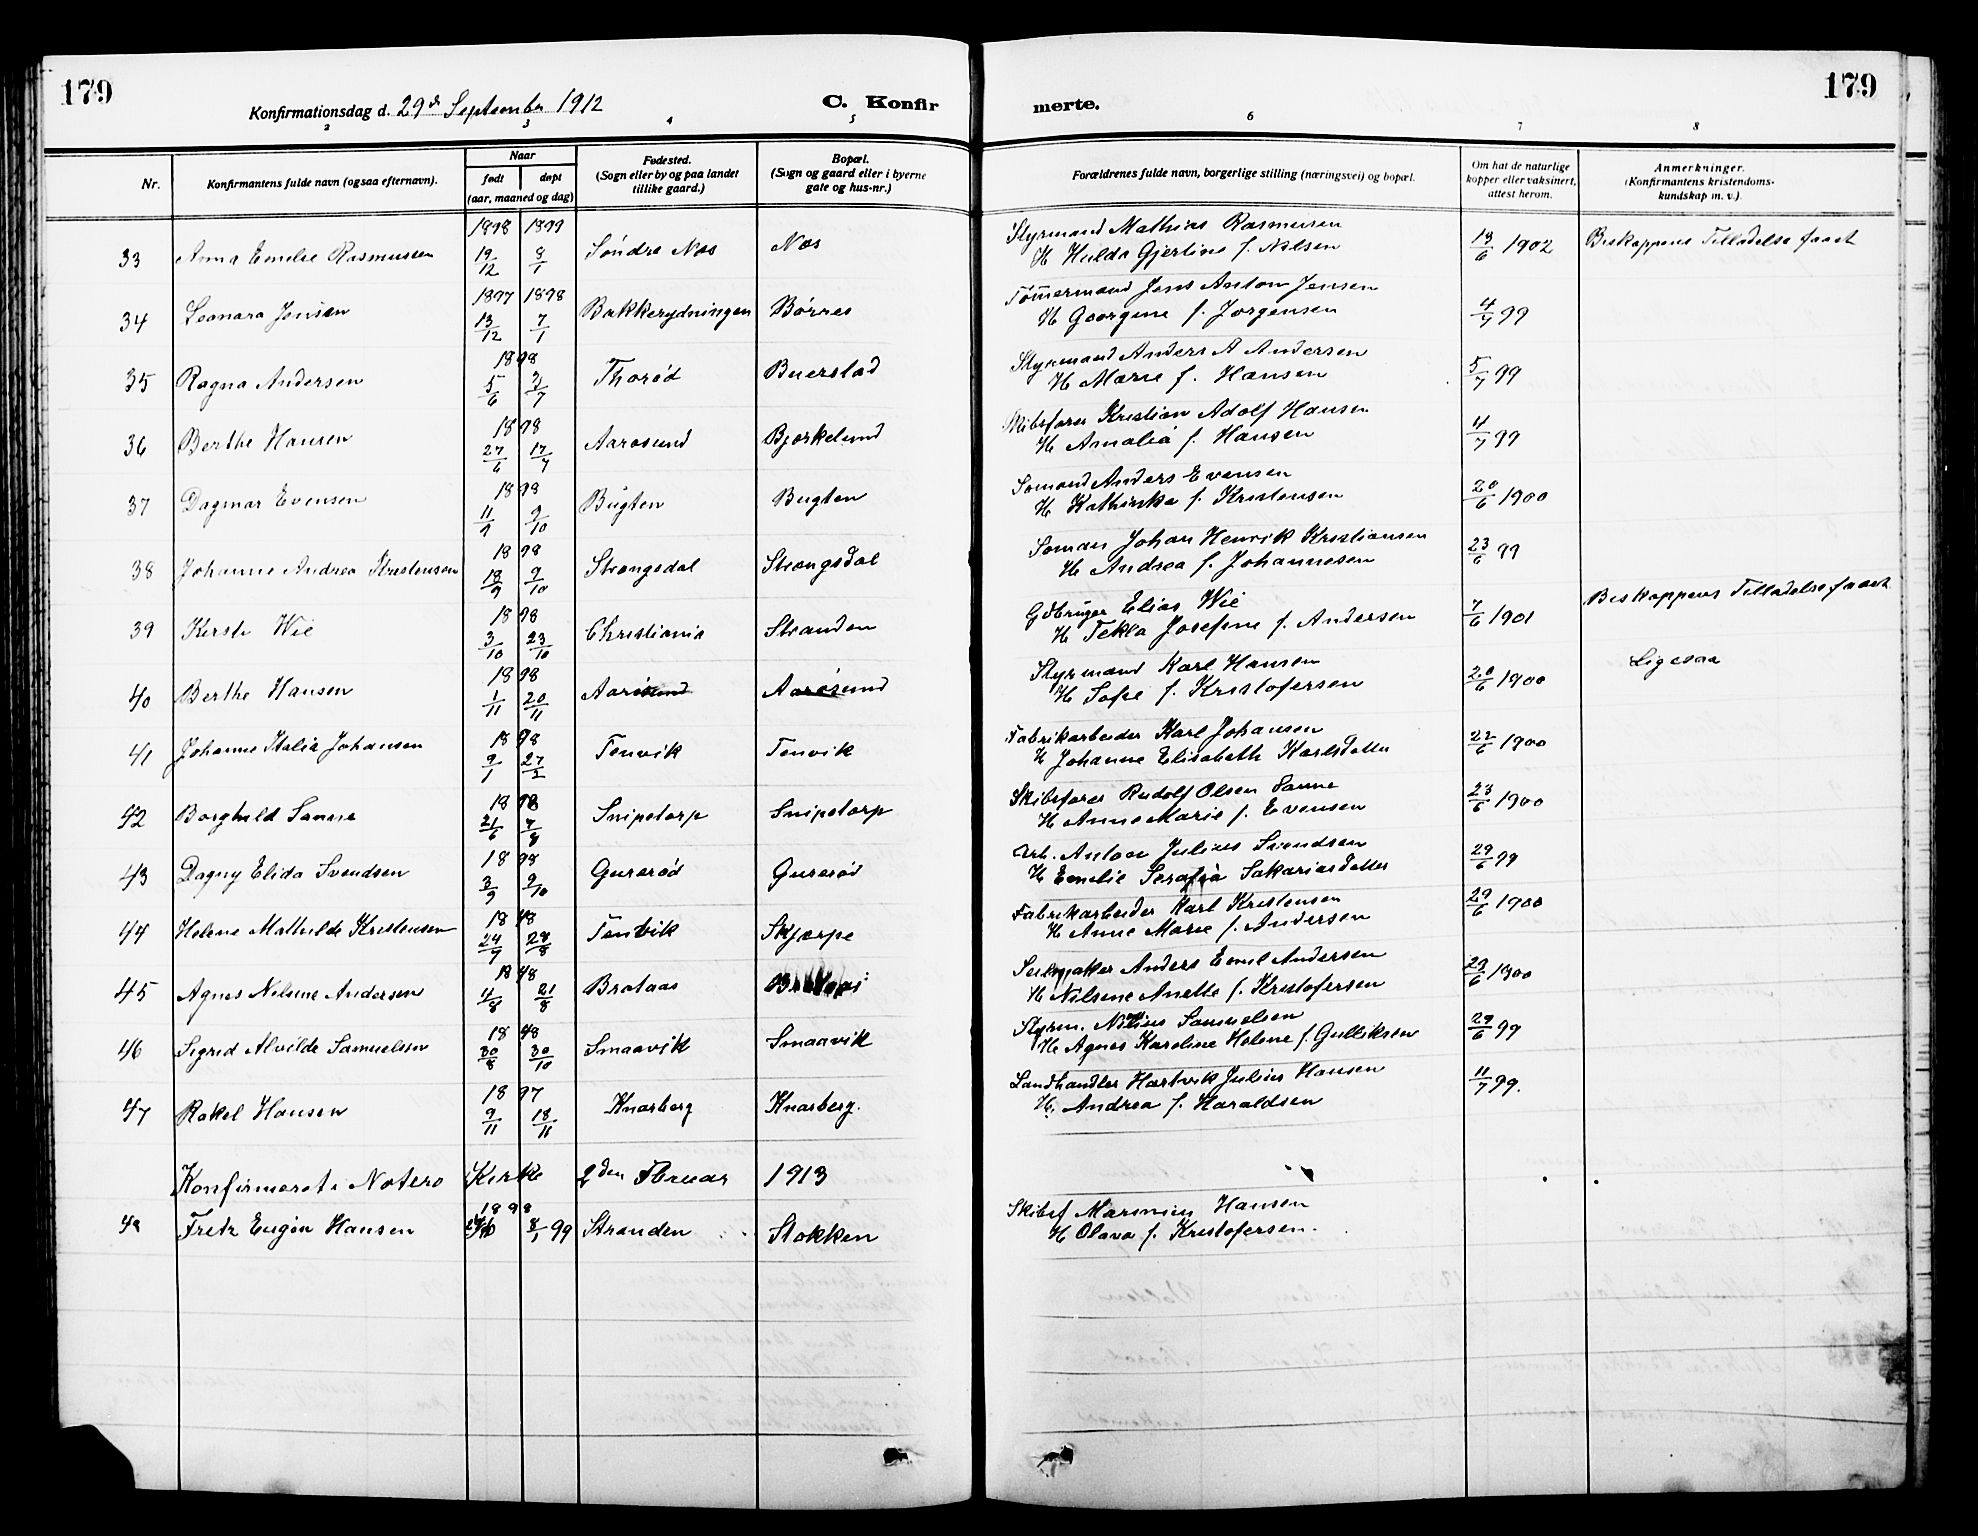 179
Konfirmationsdag d. 29de September 1912
C. Konfirmerte.
179
2 3 4 5 6 7 8
Nr.
Konfirmantens fulde navn (ogsaa efternavn).
Naar
født
døpt
(aar, maaned og dag)
Fødested.
(Sogn eller by og paa landet
tillike gaard.)
Bopæl.
(Sogn og gaard eller i byerne
gate og hus-nr.)
Forældrenes fulde navn, borgerlige stilling (næringsvei) og bopæl.
Om hat de naturlige
kopper eller vaksinert,
attest herom.
Anmerkninger.
(Konfirmantens kristendoms-
kundskap m. v.).
1898 1899 Styrmand Mathias Rasmusen
33 Anna Emelie Rasmussen 19/12 8/1 Søndre Nes Nes H Hulda Gjertine f. Nilsen 13/6 1902 Biskoppens Tilladelse faaet
1897 1898 Tømmermand Jens Anton Jensen
34 Leonara Jensen 13/12 7/1 Bakkerydningen Børres H Georgine f. Jorgensen 4/7 99
1898 Styrmand Anders A Andersen
35 Ragna Andersen 5/6 3/7 Thorød Buerstad H Marie f. Hansen 5/7 99
1898 Skibsfører Kristian Adolf Hansen
36 Berthe Hansen 27/6 17/7 Aarøsund Bjørkelund H Amalia f. Hansen 4/7 99
1898 Sømand Anders Evensen
37 Dagmar Evensen 11/9 9/10 Bugten Bugten H Kathinka f. Kristensen 20/6 1900
1898 Søman Johan Henrik Kristiansen
38 Johanne Andrea Kristensen 18/9 9/10 Strengsdal Strengsdal H Andrea f. Johannesen 23/6 99
1898 Gdbruger Elias Wie
39 Kirsti Wie 3/10 23/10 Christiania Stranden H Tekla Josefine f. Andersen 7/6 1901 Biskoppens Tilladelse faaet
1898 Styrmand Karl Hansen
40 Berthe Hansen 1/11 20/11 Aarøsund Aarøsund H Sofie f. Kristofersen 20/6 1900 Ligesaa
1898 Fabrikarbeider Karl Johansen
41 Johanne Italia Johansen 9/1 27/2 Tenvik Tenvik H Johanne Elisabeth Karlsdatter 22/6 1900
1898 Skibsfører Rudolf Olsen Sanne
42 Borghild Sanne 21/6 7/8 Snipetorp Snipetorp H Anne Marie f. Evensen 23/6 1900
1898 Arb. Anton Julius Svendsen
43 Dagny Elida Svendsen 3/9 9/10 Guserød Guserød H Emelie Serafia Sakariasdatter 29/6 99
1898 Fabrikarbeider Karl Kristensen
44 Helene Mathilde Kristensen 24/7 28/8 Tenvik Skjærpe H Anne Marie f. Andersen 29/6 1900
1898 Seilmaker Anders Emil Andersen
45 Agnes Nilsine Andersen 4/8 21/8 Brataas H Nilsine Anette f. Kristofersen 29/6 1900
1898 Styrm. Samuelsen
46 Sigrid Alvilde Samuelsen 30/8 30/10 Smaavik Smaavik H Agnes Karoline Helene f. Gulliksen 29/6 99
1897 Landhandler Hartvik Julius Hansen
47 Rakel Hansen 9/11 18/11 Knarberg Knarberg. H. Andrea f. Haraldsen 11/7 99.
Konfirmeret i Nøterø Kirke 2den Febuar 1913
1898 Skibsf Marinius Hansen
48 Fritz Eugen Hansen 8/1 99 Stranden Stokken H Olava f. Kristofersen.